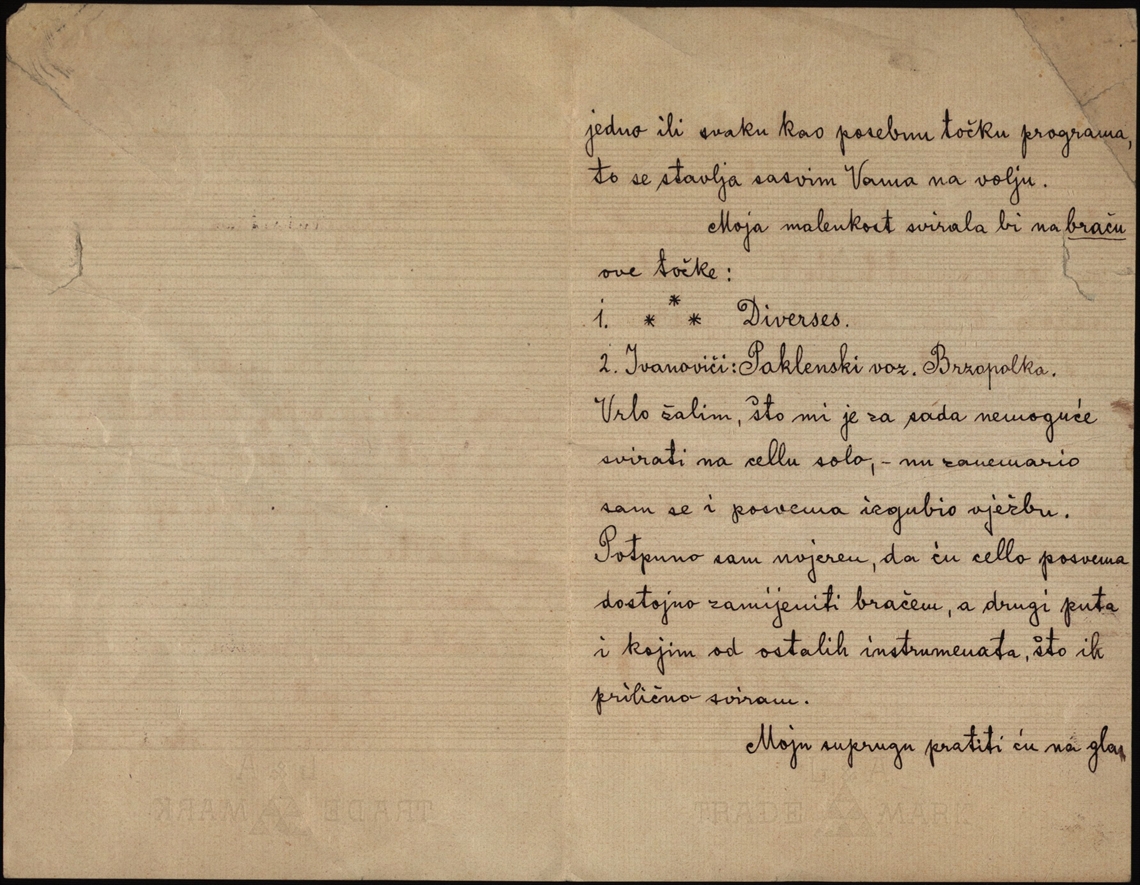 jedno ili svaku kao posebnu točku programa,
to se stavlja sasvim Vama na volju.
Moja malenkost svirala bi na braču
ove točke:
1. *** Diverses.
2. Ivanovići: Paklenski voz. Brzopolka.
Vrlo žalim, što mi je za sada nemoguće
svirati na cellu solo, - nu zanemario
sam se i posvema izgubio vježbu.
Potpuno sam uvjeren, da ću cello posvema
dostojno zamijeniti bračem, a drugi puta
i kojim od ostalih instrumenata, što ih
prilično sviram.
Moju suprugu pratiti ću na glas
L & A
TRADE MARK
L & A
TRADE MARK